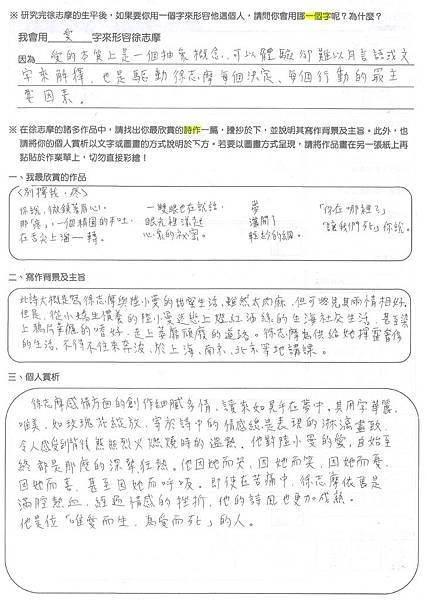 ※ 研究完徐志摩的生平後，如果要你用一個字來形容他這個人，請問你會用哪一個字呢？為什麼？
我會用 愛 字來形容徐志摩
因為 愛的本質上是一個抽象概念，可以體驗卻難以用言語或文
字來解釋，也是驅動徐志摩每個決定、每個行動的最主
要因素。
※ 在徐志摩的諸多作品中，請找出你最欣賞的詩作一篇，謄抄於下，並說明其寫作背景及主旨。此外，也
請將你的個人賞析以文字或圖畫的方式說明於下方。若要以圖畫方式呈現，請將作品畫在另一張紙上再
黏貼於作業單上，切勿直接彩繪！
一、我最欣賞的作品
〈別擰我，疼〉
你說，微鎖著眉心。
那「疼」，一個精圓的半吐，
在舌尖上溜—轉。
一雙眼也在說話，
睛光裡漾起
心泉的秘密。
夢
灑開了
輕紗的網。
「你在哪裡？」
「讓我們死」你說。
二、寫作背景及主旨
此詩大概是寫徐志摩與陸小曼的甜蜜生活，雖然太肉麻，但可以見其兩情相好。
但是，從小嬌生慣養的陸小曼迷戀上燈紅酒綠的上海社交生活，甚至染
上鴉片
的嗜好，走上萎靡頹廢的道路。徐志摩為供給她揮霍奢侈
的生活，不得不往來奔波，於上海、南京、北京等地講課。
三、個人賞析
徐志摩感情方面的創作細膩多情，讀來如是乎在夢中。其用字華麗、
唯美，如玫瑰於綻放，寄於詩中的情感總是表現的淋漓盡致，
令人感受到
熊熊烈火燃燒時的溫熱。他對陸小曼的愛，自始至
終都是那麼的深摯狂熱。他因她而笑，因她而哭，因她而憂，
因她而喜，甚至因她而呼吸。即使在苦痛中，徐志摩依舊是
滿腔熱血，經過情感的挫折，他的詩風也更加成熟。
他是位「唯愛而生，為愛而死」的人。